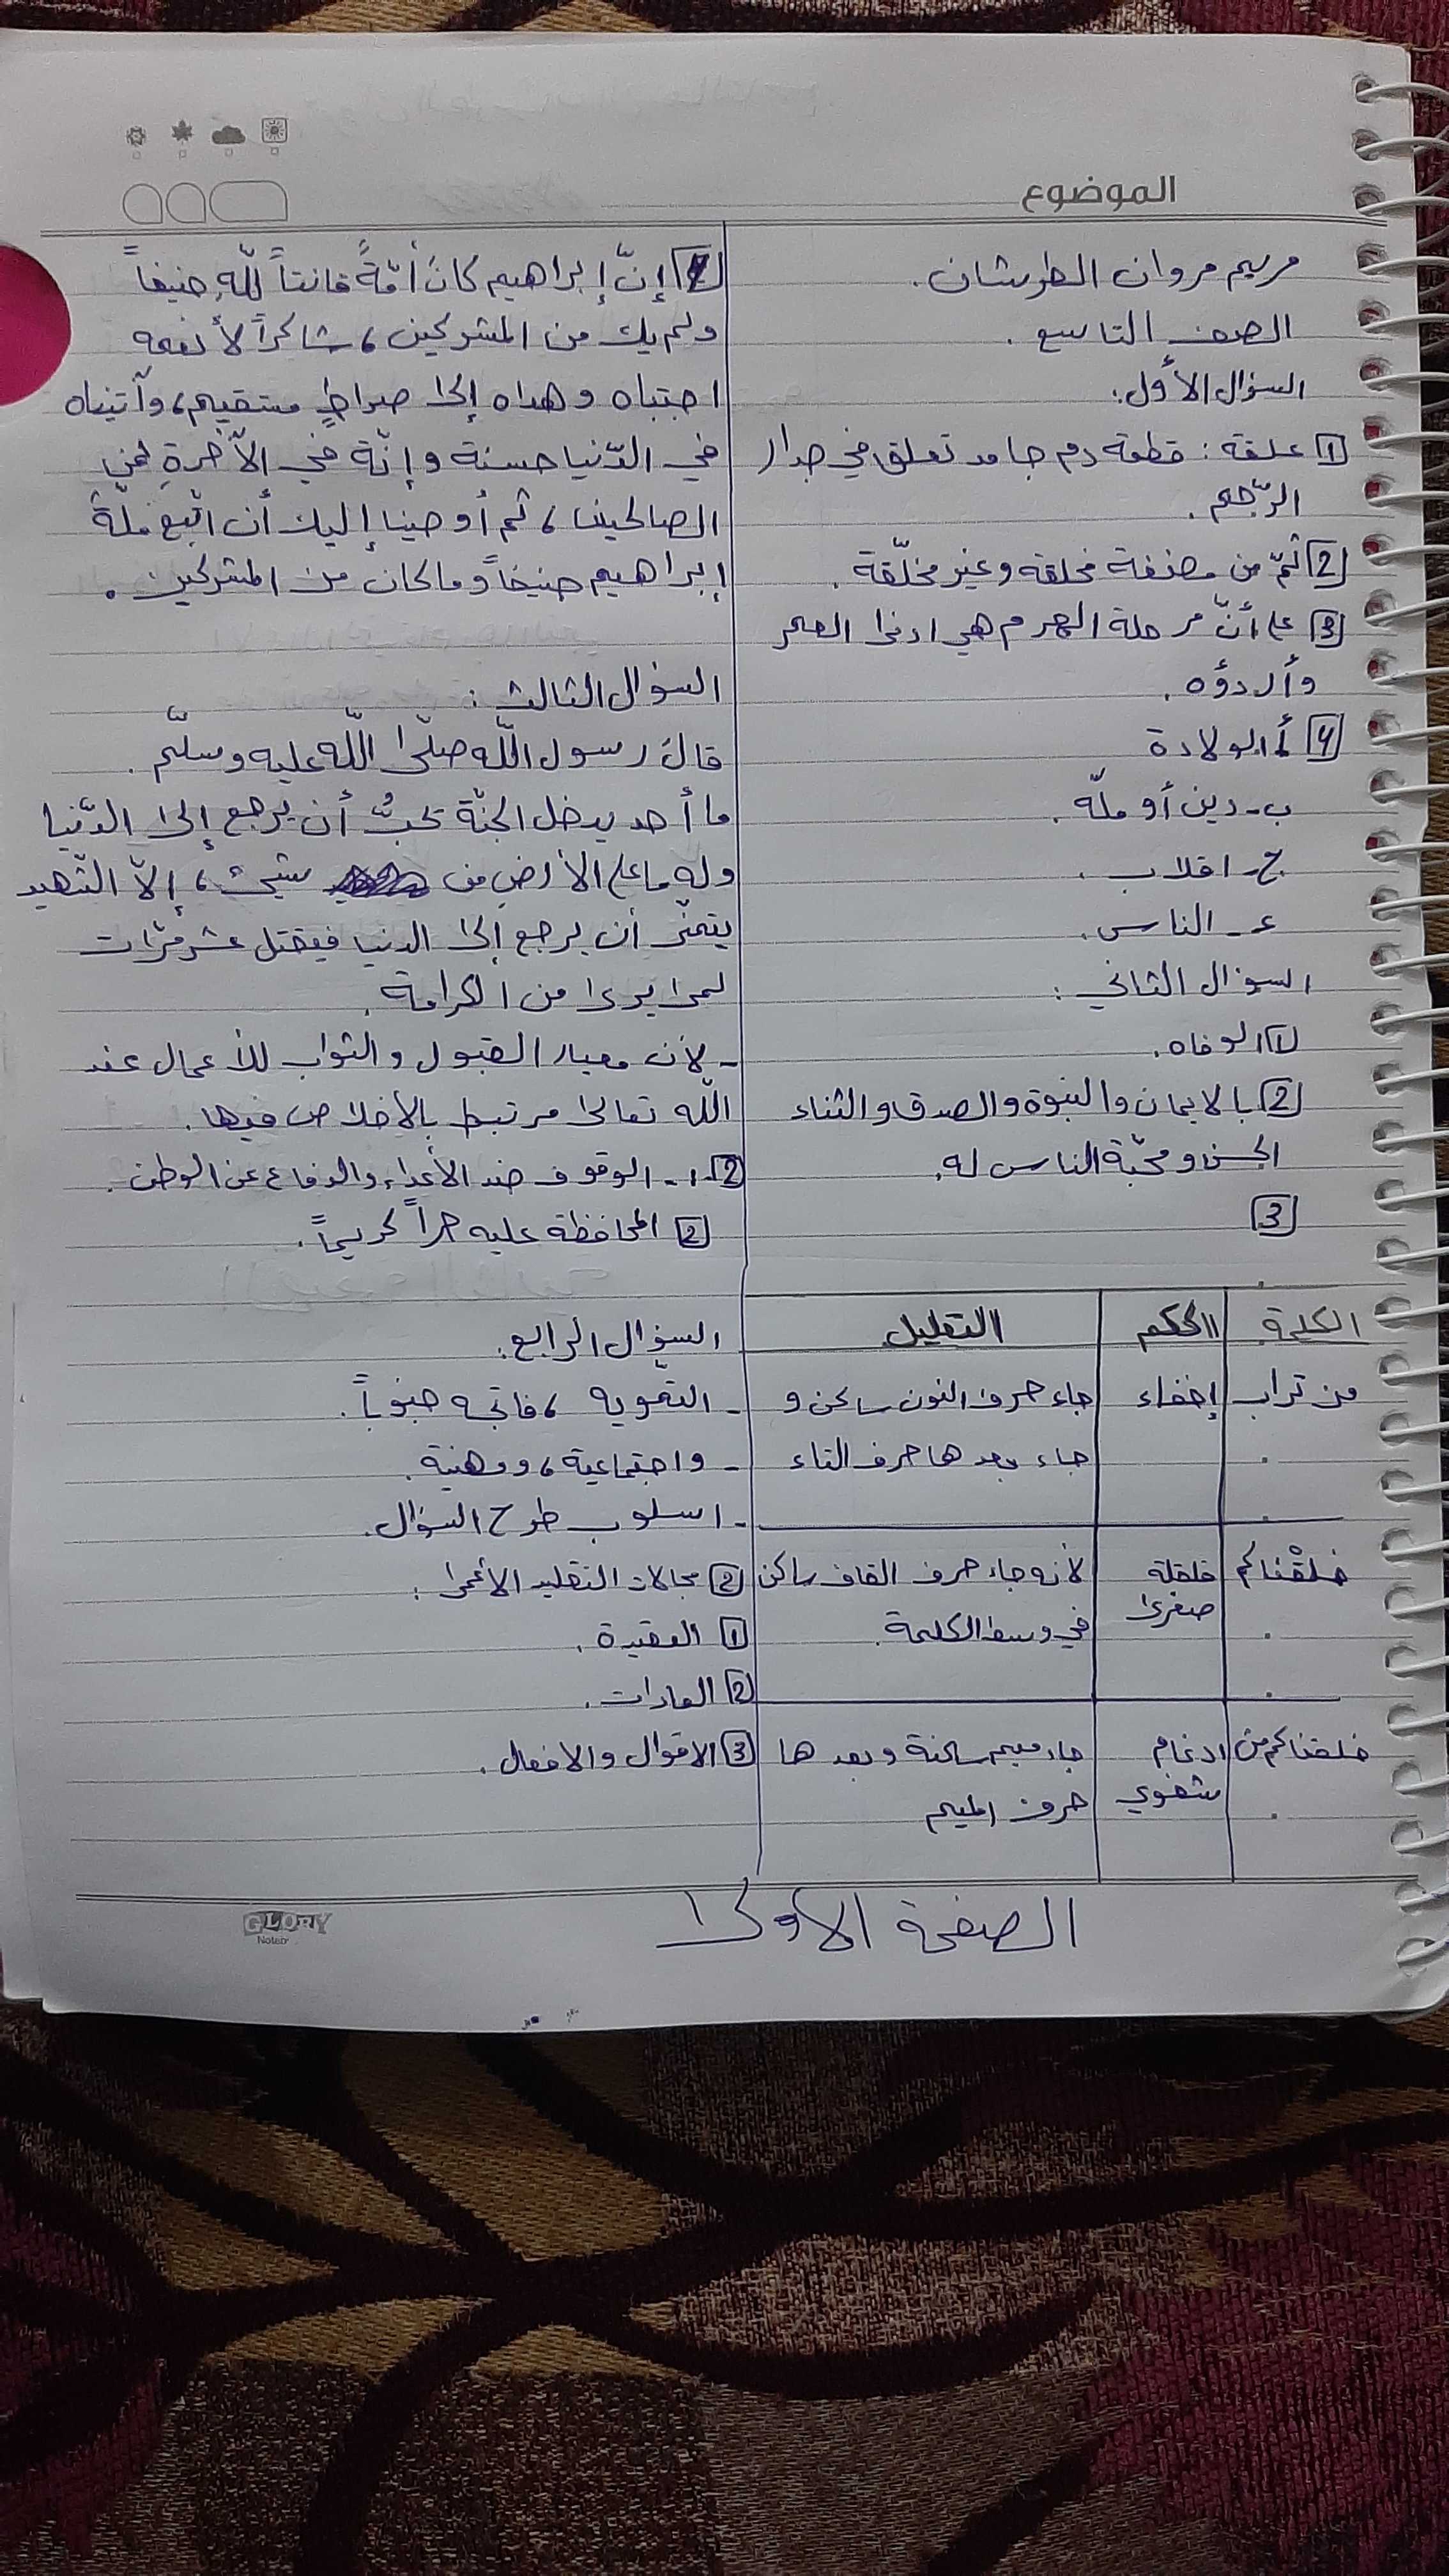 الموضوع
مريم مروان الطرشان.
الصف التاسع.
السؤال الأول:
1 علقة: قطعة دم جامد تعلق في جدار
الرّحم.
2 ثمّ من مضغة مخلقة وغير مخلّقة.
3 على أنّ مرحلة الهرم هي ادنى العمر
وأردؤه.
4 أ. الولادة
ب- دين أو ملّة.
ج- اقلاب.
ء- الناس.
السؤال الثاني:
1 الوفاه.
2 بالايمان والنبوة والصدق والثناء
الحسن ومحبّة الناس له.
3
الكلمة الحكم التعليل
من تراب إخفاء جاء حرف النون ساكن و
جاء بعدها حرف التاء
خلقْناكم قلقلة لأنه جاء حرف القاف ساكن
صغرى في وسط الكلمة.
خلقناكم من ادغام جاء ميم ساكنة وبعدها
شفوي حرف الميم
4 إنّ إبراهيم كان أمّةً قانتاً للّه حنيفاً
ولم يك من المشركين، شاكراً لأنعمه
اجتباه وهداه إلى صراطٍ مستقيم، وآتيناه
في الدّنيا حسنة وإنّه في الآخرة لمن
الصالحين، ثم أوحينا إليك أن اتّبع ملّة
إبراهيم حنيفاً وما كان من المشركين.
السؤال الثالث:
قال رسول اللّه صلّى اللّه عليه وسلّم.
ما أحد يدخل الجنّة يحبُّ أن يرجع إلى الدّنيا
وله ما على الأرض من شيء، إلاّ الشّهيد
يتمنّى أن يرجع إلى الدنيا فيقتل عشر مرّات
لما يرى من الكرامة.
- لأن معيار القبول والثواب للأعمال عند
اللّه تعالى مرتبط بالإخلاص فيها.
2-1- الوقوف ضد الأعداء والدفاع عن الوطن.
2 المحافظة عليه حراً كريماً.
السؤال الرابع.
- التمّويه، فاتجه جنوباً.
- واجتماعية، ومهنية.
- اسلوب طرح السؤال.
2 مجالات التقليد الأعمى:
1 العقيدة.
2 العادات.
3 الاقوال والافعال.
الصفحة الأولى
GLORY
Note